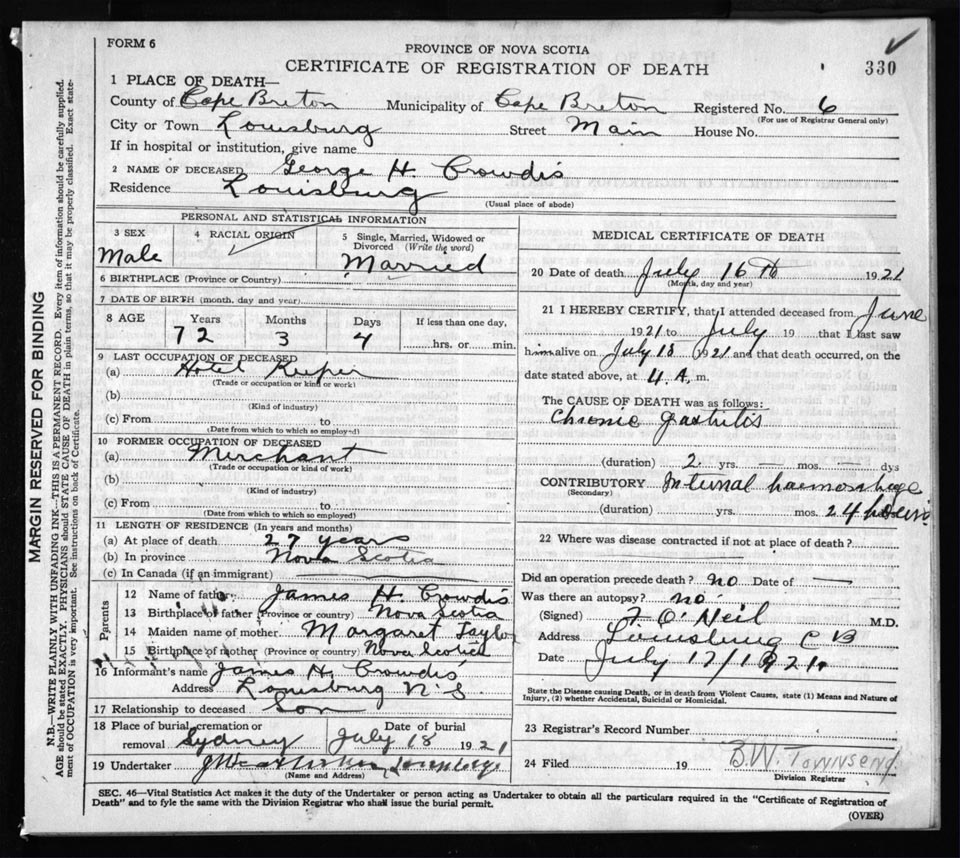 FORM 6
PROVINCE OF NOVA SCOTIA
CERTIFICATE OF REGISTRATION OF DEATH
330
1 PLACE OF DEATH—
County of Cape Breton Municipality of Cape Breton Registered No. 6
(For use of Registrar General only)
City or Town Louisburg Street Main House No.
If in hospital or institution, give name
2 NAME OF DECEASED George H. Crowdis
Residence Louisburg
(Usual place of abode)
PERSONAL AND STATISTICAL INFORMATION
3 SEX
Male
4 RACIAL ORIGIN
5 Single, Married, Widowed or Divorced (Write the word)
Married
6 BIRTHPLACE (Province or Country)
7 DATE OF BIRTH (month, day and year)
8 AGE Years Months Days If less than one day,
72 3 4 hrs. or min.
9 LAST OCCUPATION OF DECEASED
(a) Hotel Keeper
(Trade or occupation or kind or work)
(b)
(Kind of industry)
(c) From to
(Date from which to which so employed)
10 FORMER OCCUPATION OF DECEASED
(a) Merchant
(Trade or occupation or kind of work)
(b)
(Kind of industry)
(c) From to
(Date from which to which so employed)
11 LENGTH OF RESIDENCE (In years and months)
(a) At place of death 27 years
(b) In province Nova Scotia
(c) In Canada (if an immigrant)
Parents
12 Name of father James H. Crowdis
13 Birthplace of father (Province or country) Nova Scotia
14 Maiden name of mother Margaret Taylor
15 Birthplace of mother (Province or country) Nova Scotia
16 Informant's name James H. Crowdis
Address Louisburg N.S.
17 Relationship to deceased Son
18 Place of burial, cremation or removal Sydney Date of burial July 18 1921
19 Undertaker
(Name and Address)
MEDICAL CERTIFICATE OF DEATH
20 Date of death July 16th 1921
(Month, day and year)
21 I HEREBY CERTIFY, that I attended deceased from June
1921 to July 19 that I last saw
him alive on July 15 1921 and that death occurred, on the
date stated above, at 4 A. m.
The CAUSE OF DEATH was as follows:
Chronic gastritis
(duration) 2 yrs. — mos. — dys
CONTRIBUTORY Internal haemorrhage
(Secondary)
(duration) yrs. mos. 24 hours
22 Where was disease contracted if not at place of death?
Did an operation precede death? no Date of —
Was there an autopsy? no
(Signed) O'Neil M.D.
Address Louisburg C B
Date July 17/1921.
State the Disease causing Death, or in death from Violent Causes, state (1) Means and Nature of
Injury, (2) whether Accidental, Suicidal or Homicidal.
23 Registrar's Record Number
24 Filed 19 B.W. Townsend
Division Registrar
SEC. 46—Vital Statistics Act makes it the duty of the Undertaker or person acting as Undertaker to obtain all the particulars required in the "Certificate of Registration of
Death" and to fyle the same with the Division Registrar who shall issue the burial permit.
(OVER)
MARGIN RESERVED FOR BINDING
N.B.—WRITE PLAINLY WITH UNFADING INK—THIS IS A PERMANENT RECORD. Every item of information should be carefully supplied.
AGE should be stated EXACTLY. PHYSICIANS should STATE CAUSE OF DEATH in plain terms, so that it may be properly classified. Exact state-
ment of OCCUPATION is very important. See instructions on back of Certificate.